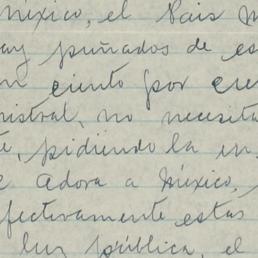 México, el País M
ay puñados de es
n ciento por cie
nistral, no necesita
te, pidiendo la en
e Adora a México,
efectivamente estas
luz pública, el